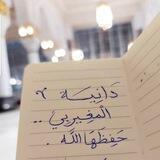 دَانِيَة
المغيربي ..
حَفِظَهَا اللَّه .